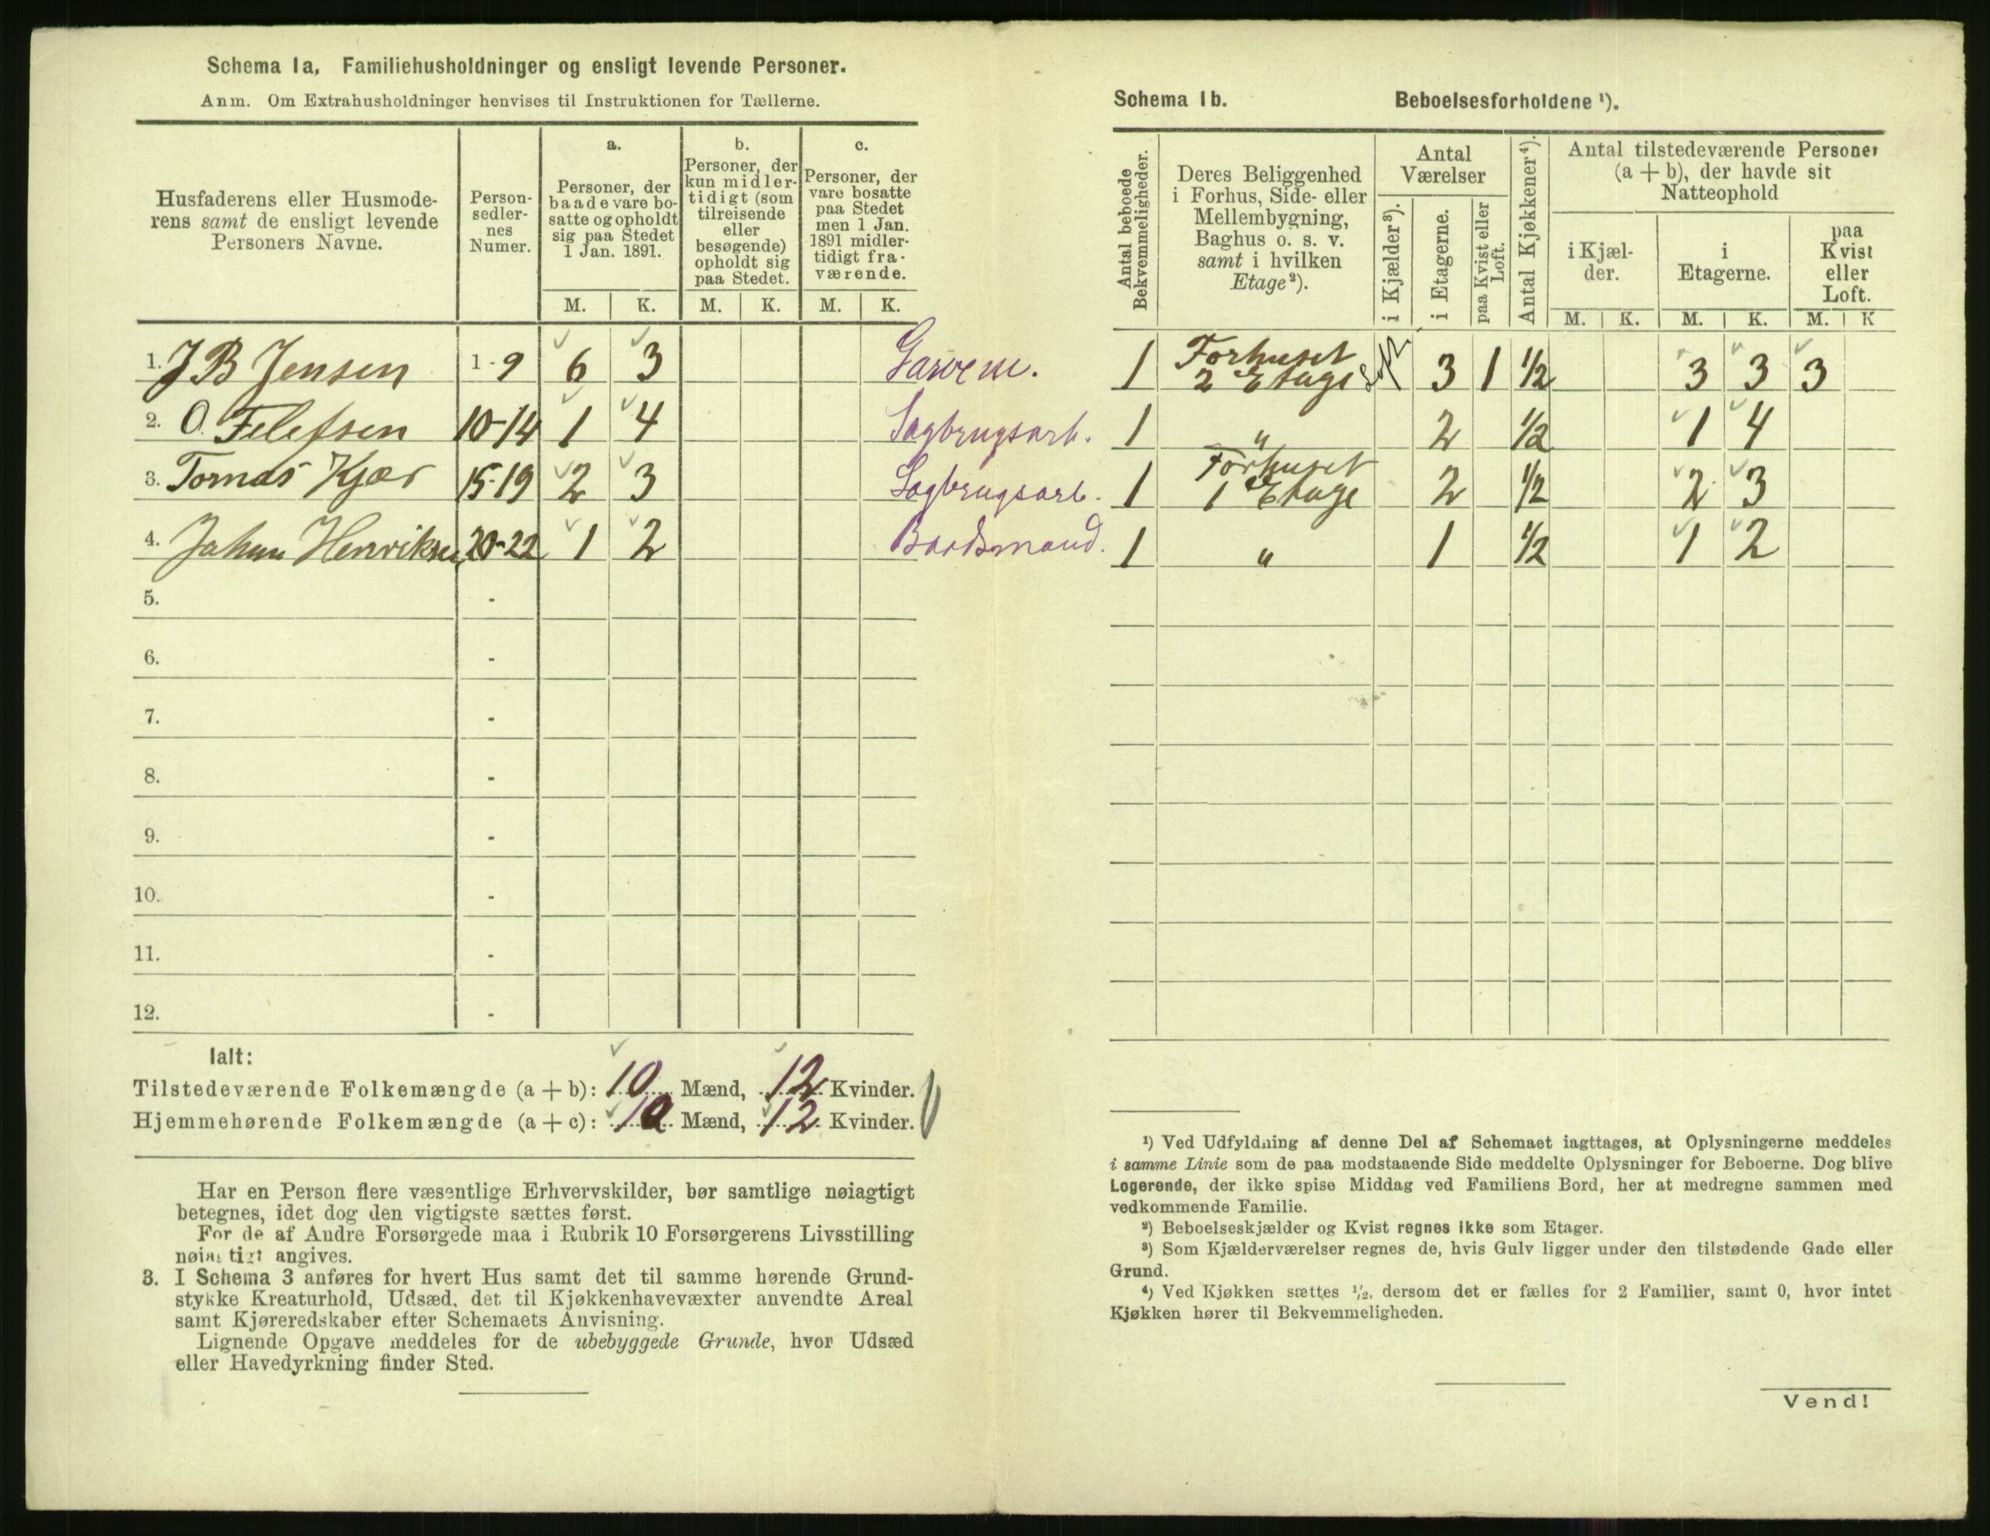 Schema 1a, Familiehusholdninger og ensligt levende Personer.
Anm. Om Extrahusholdninger henvises til Instruktionen for Tællerne.
Husfaderens eller Husmode-
rens samt de ensligt levende
Personers Navne.
Person-
sedler-
nes
Numer.
a.
Personer, der
baade vare bo-
satte og opholdt
sig paa Stedet
1 Jan. 1891.
b.
Personer, der
kun midler-
tidigt (som
tilreisende
eller
besøgende)
opholdt sig
paa Stedet.
c.
Personer, der
vare bosatte
paa Stedet
men 1 Jan.
1891 midler-
tidigt fra-
værende.
M. K. M. K. M. K.
1. J B Jensen 1-9 6 3
2. O. Telefsen 10-14 1 4 Sagbrugsarb.
3. Tomas Kjær 15-19 2 3 Sagbrugsarb.
4. Johan Henriksen 20-22 1 2 Baadsmand.
5. -
6. -
7. -
8. -
9. -
10. -
11. -
12. -
Ialt:
Tilstedeværende Folkemængde (a + b): 10 Mænd, 12 Kvinder.
Hjemmehørende Folkemængde (a + c): 10 Mænd, 12 Kvinder.
Har en Person flere væsentlige Erhvervskilder, bør samtlige nøiagtigt
betegnes, idet dog den vigtigste sættes først.
For de af Andre Forsørgede maa i Rubrik 10 Forsørgerens Livsstilling
nøiagtigt angives.
3. I Schema 3 anføres for hvert Hus samt det til samme hørende Grund-
stykke Kreaturhold, Udsæd, det til Kjøkkenhavevæxter anvendte Areal
samt Kjøreredskaber efter Schemaets Anvisning.
Lignende Opgave meddeles for de ubebyggede Grunde, hvor Udsæd
eller Havedyrkning finder Sted.
Schema 1b. Beboelsesforholdene ¹).
Antal beboede
Bekvemmeligheder.
Deres Beliggenhed
i Forhus, Side- eller
Mellembygning,
Baghus o. s. v.
samt i hvilken
Etage ²).
Antal
Værelser
i Kjælder ³).
i Etagerne.
paa Kvist eller
Loft.
Antal Kjøkkener ⁴).
Antal tilstedeværende Personer
(a + b), der havde sit
Natteophold
i Kjæl-
der.
i
Etagerne.
paa
Kvist
eller
Loft.
M. K. M. K. M. K
1 Forhuset
2 Etage 3 1 1/2 3 3 3
1 " 2 1/2 1 4
1 Forhuset
1 Etage 2 1/2 2 3
1 " 1 1/2 1 2
¹) Ved Udfyldning af denne Del af Schemaet iagttages, at Oplysningerne meddeles
i samme Linie som de paa modstaaende Side meddelte Oplysninger for Beboerne. Dog blive
Logerende, der ikke spise Middag ved Familiens Bord, her at medregne sammen med
vedkommende Familie.
²) Beboelseskjælder og Kvist regnes ikke som Etager.
³) Som Kjælderværelser regnes de, hvis Gulv ligger under den tilstødende Gade eller
Grund.
⁴) Ved Kjøkken sættes 1/2, dersom det er fælles for 2 Familier, samt 0, hvor intet
Kjøkken hører til Bekvemmeligheden.
Vend!